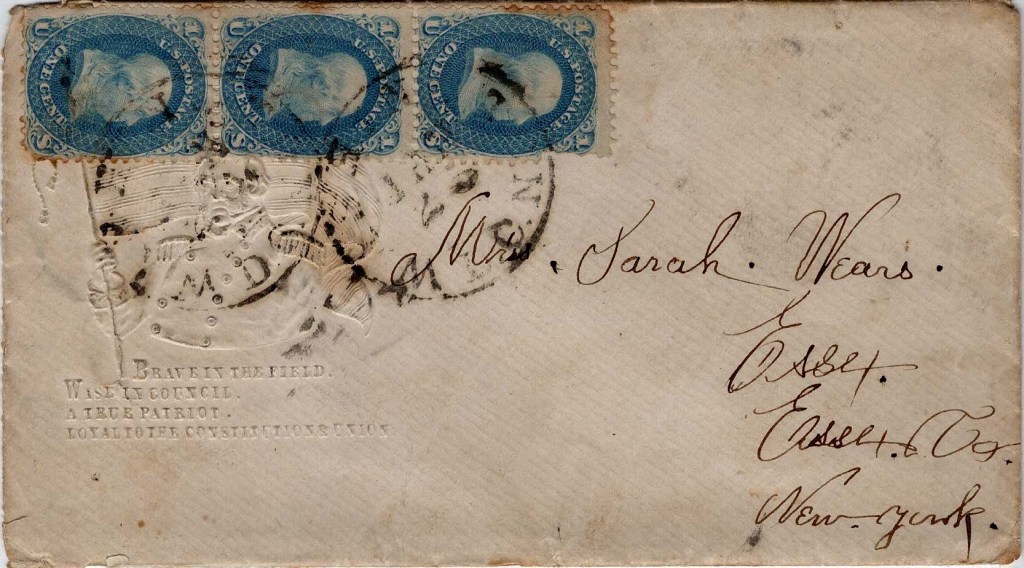 U.S. POSTAGE.
ONE CENT
1 1
U S
U.S. POSTAGE.
ONE CENT
1 1
U S
U.S. POSTAGE.
ONE CENT
1 1
U S
MD
Mrs. Sarah. Wears.
Essex.
Essex. Co.
New-york.
BRAVE IN THE FIELD.
WISE IN COUNCIL.
A TRUE PATRIOT.
LOYAL TO THE CONSTITUTION & UNION